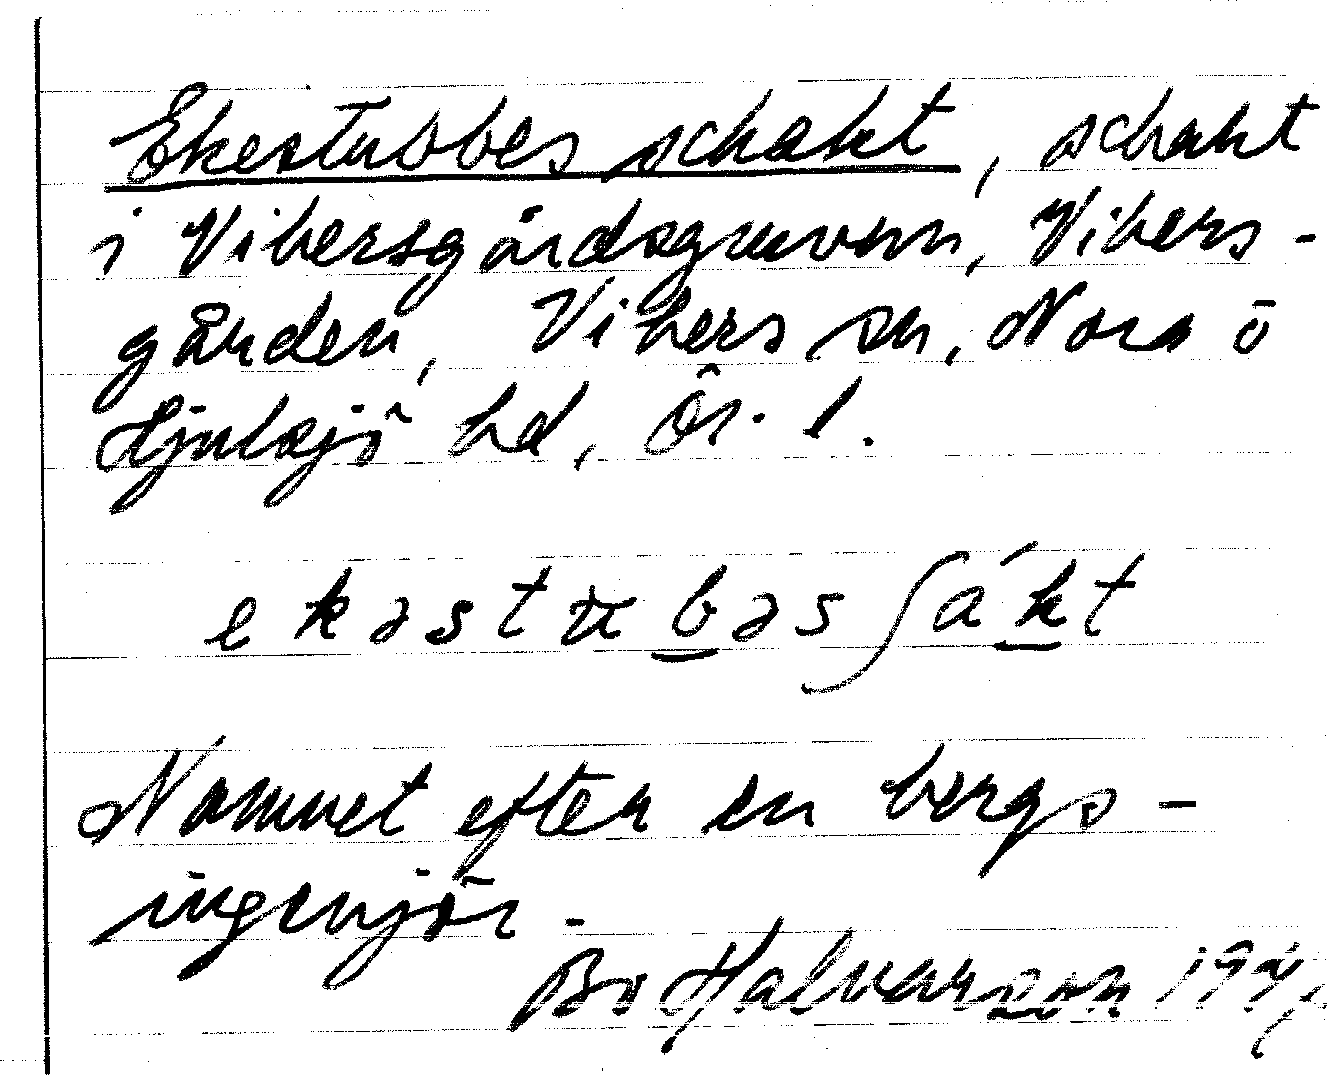 Ekestubbes schakt, schakt
i Vikersgårdsgruvan, Vikers-
gården, Vikers sn, Nora o
Hjulsjö hd, Ör. l.
ekəstubəsʃákt
Namnet efter en bergs-
ingenjör.
Bo Halvarson